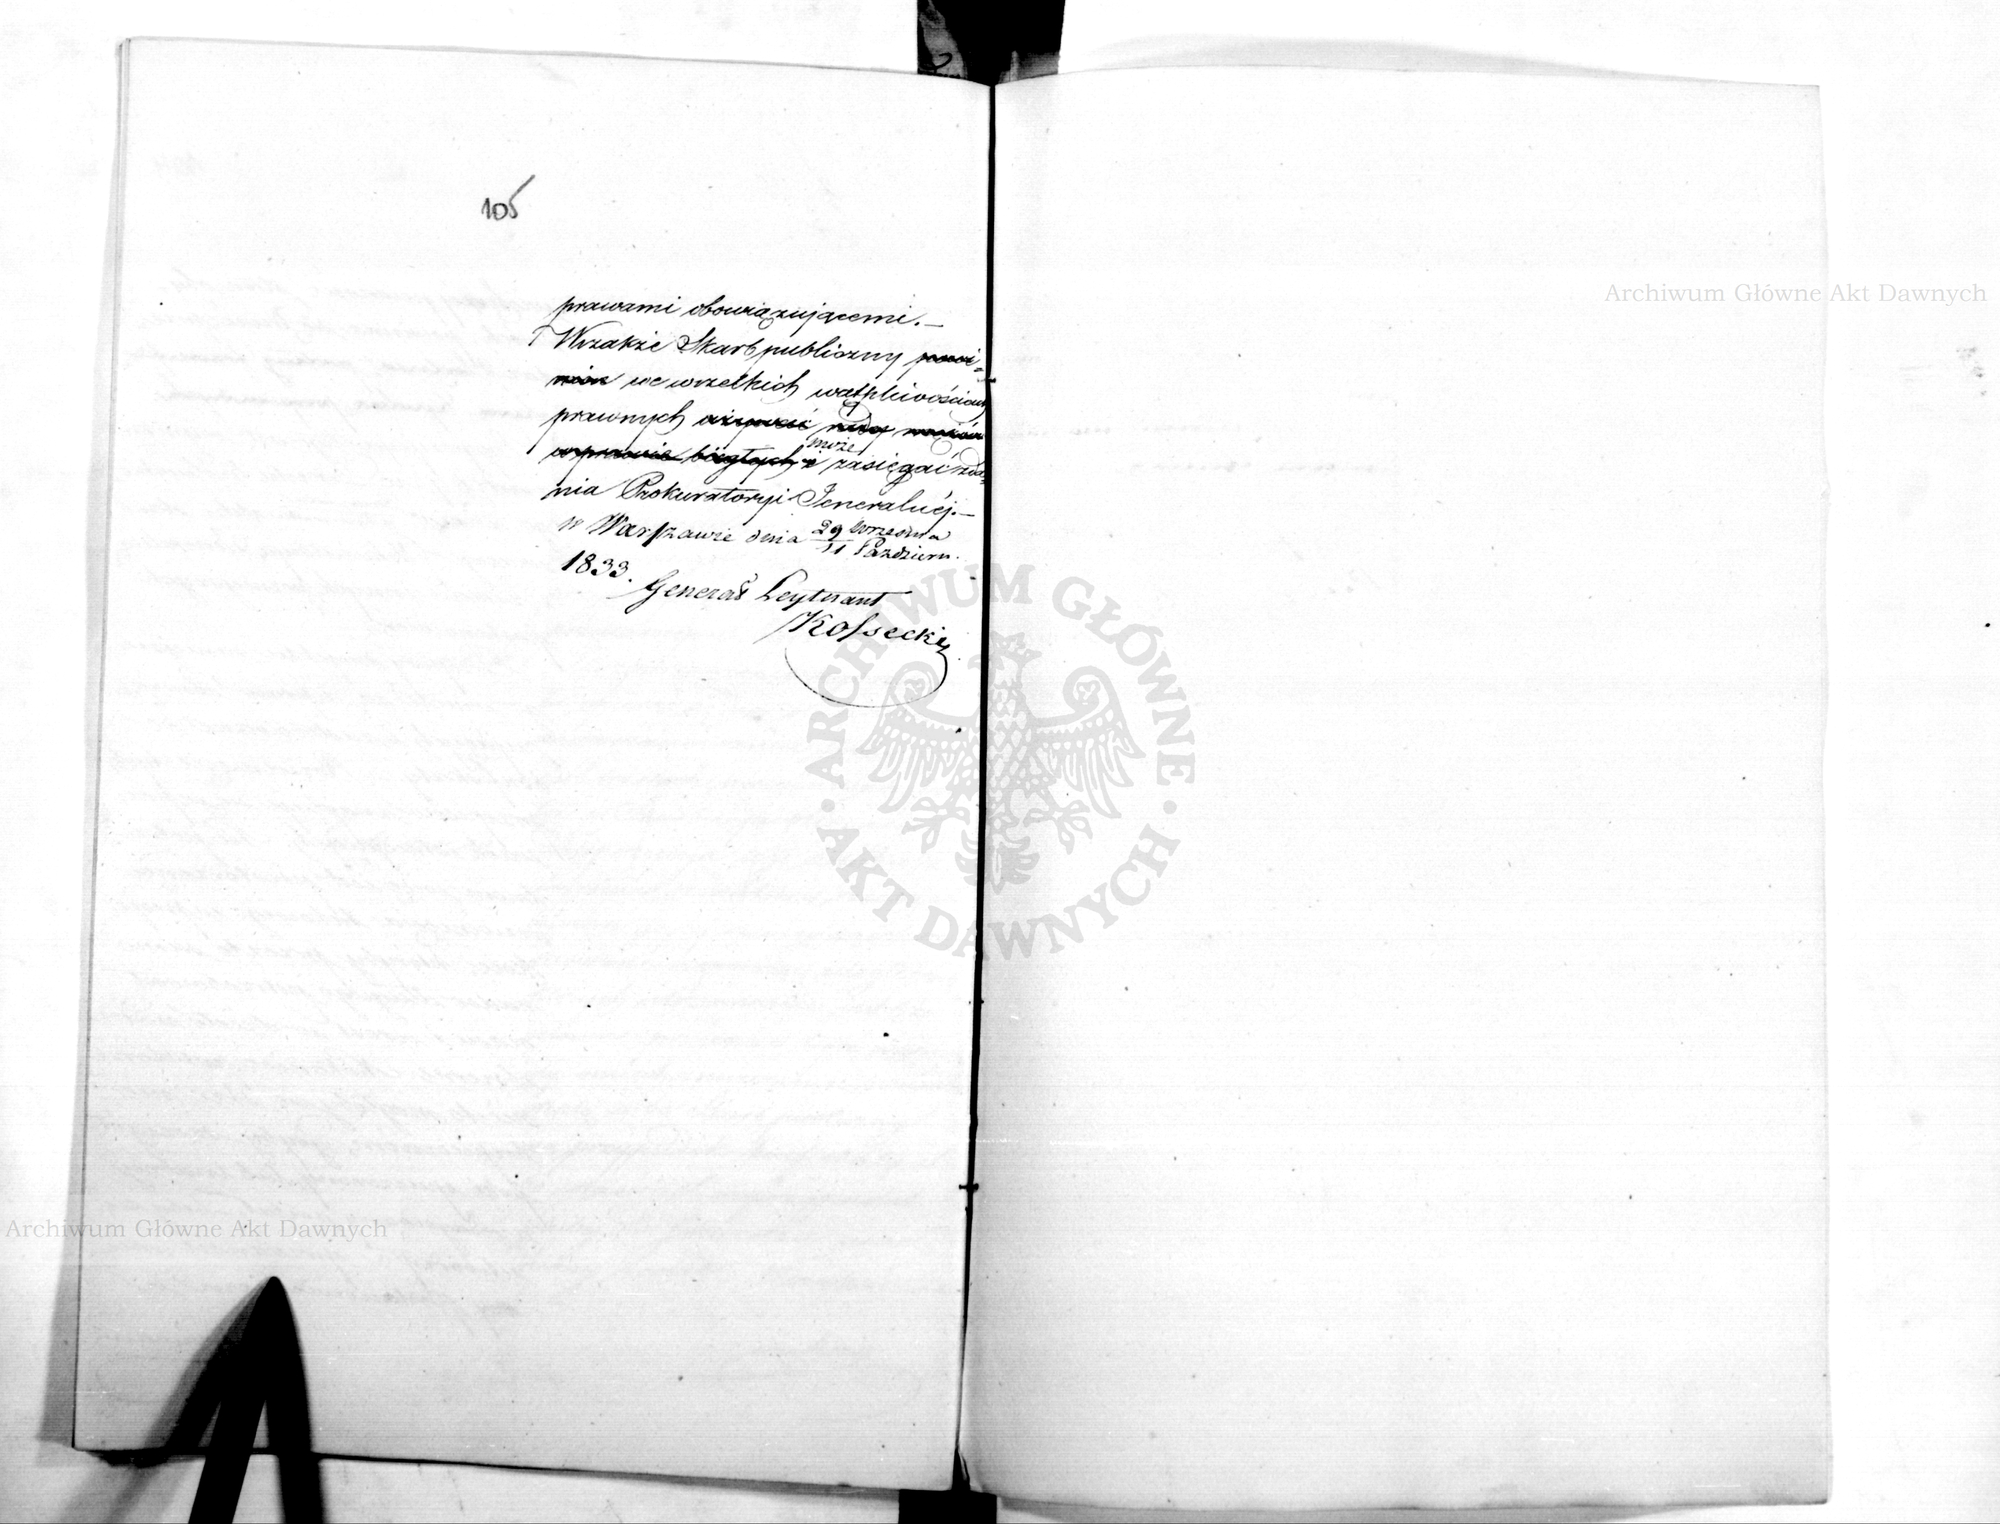 105
prawami obowiązującemi.—
Wszakże Skarb publiczny powi-
nien we wszelkich wątpliwościach
prawnych używać rady
w prawie biegłych i może zasięgać zda-
nia Prokuratoryi Jeneralnéj.—
w Warszawie dnia 29 Września
11 Październ.
1833.
Generał Leytnant
Kossecki
Archiwum Główne Akt Dawnych
ARCHIWUM GŁÓWNE · AKT DAWNYCH ·
Archiwum Główne Akt Dawnych